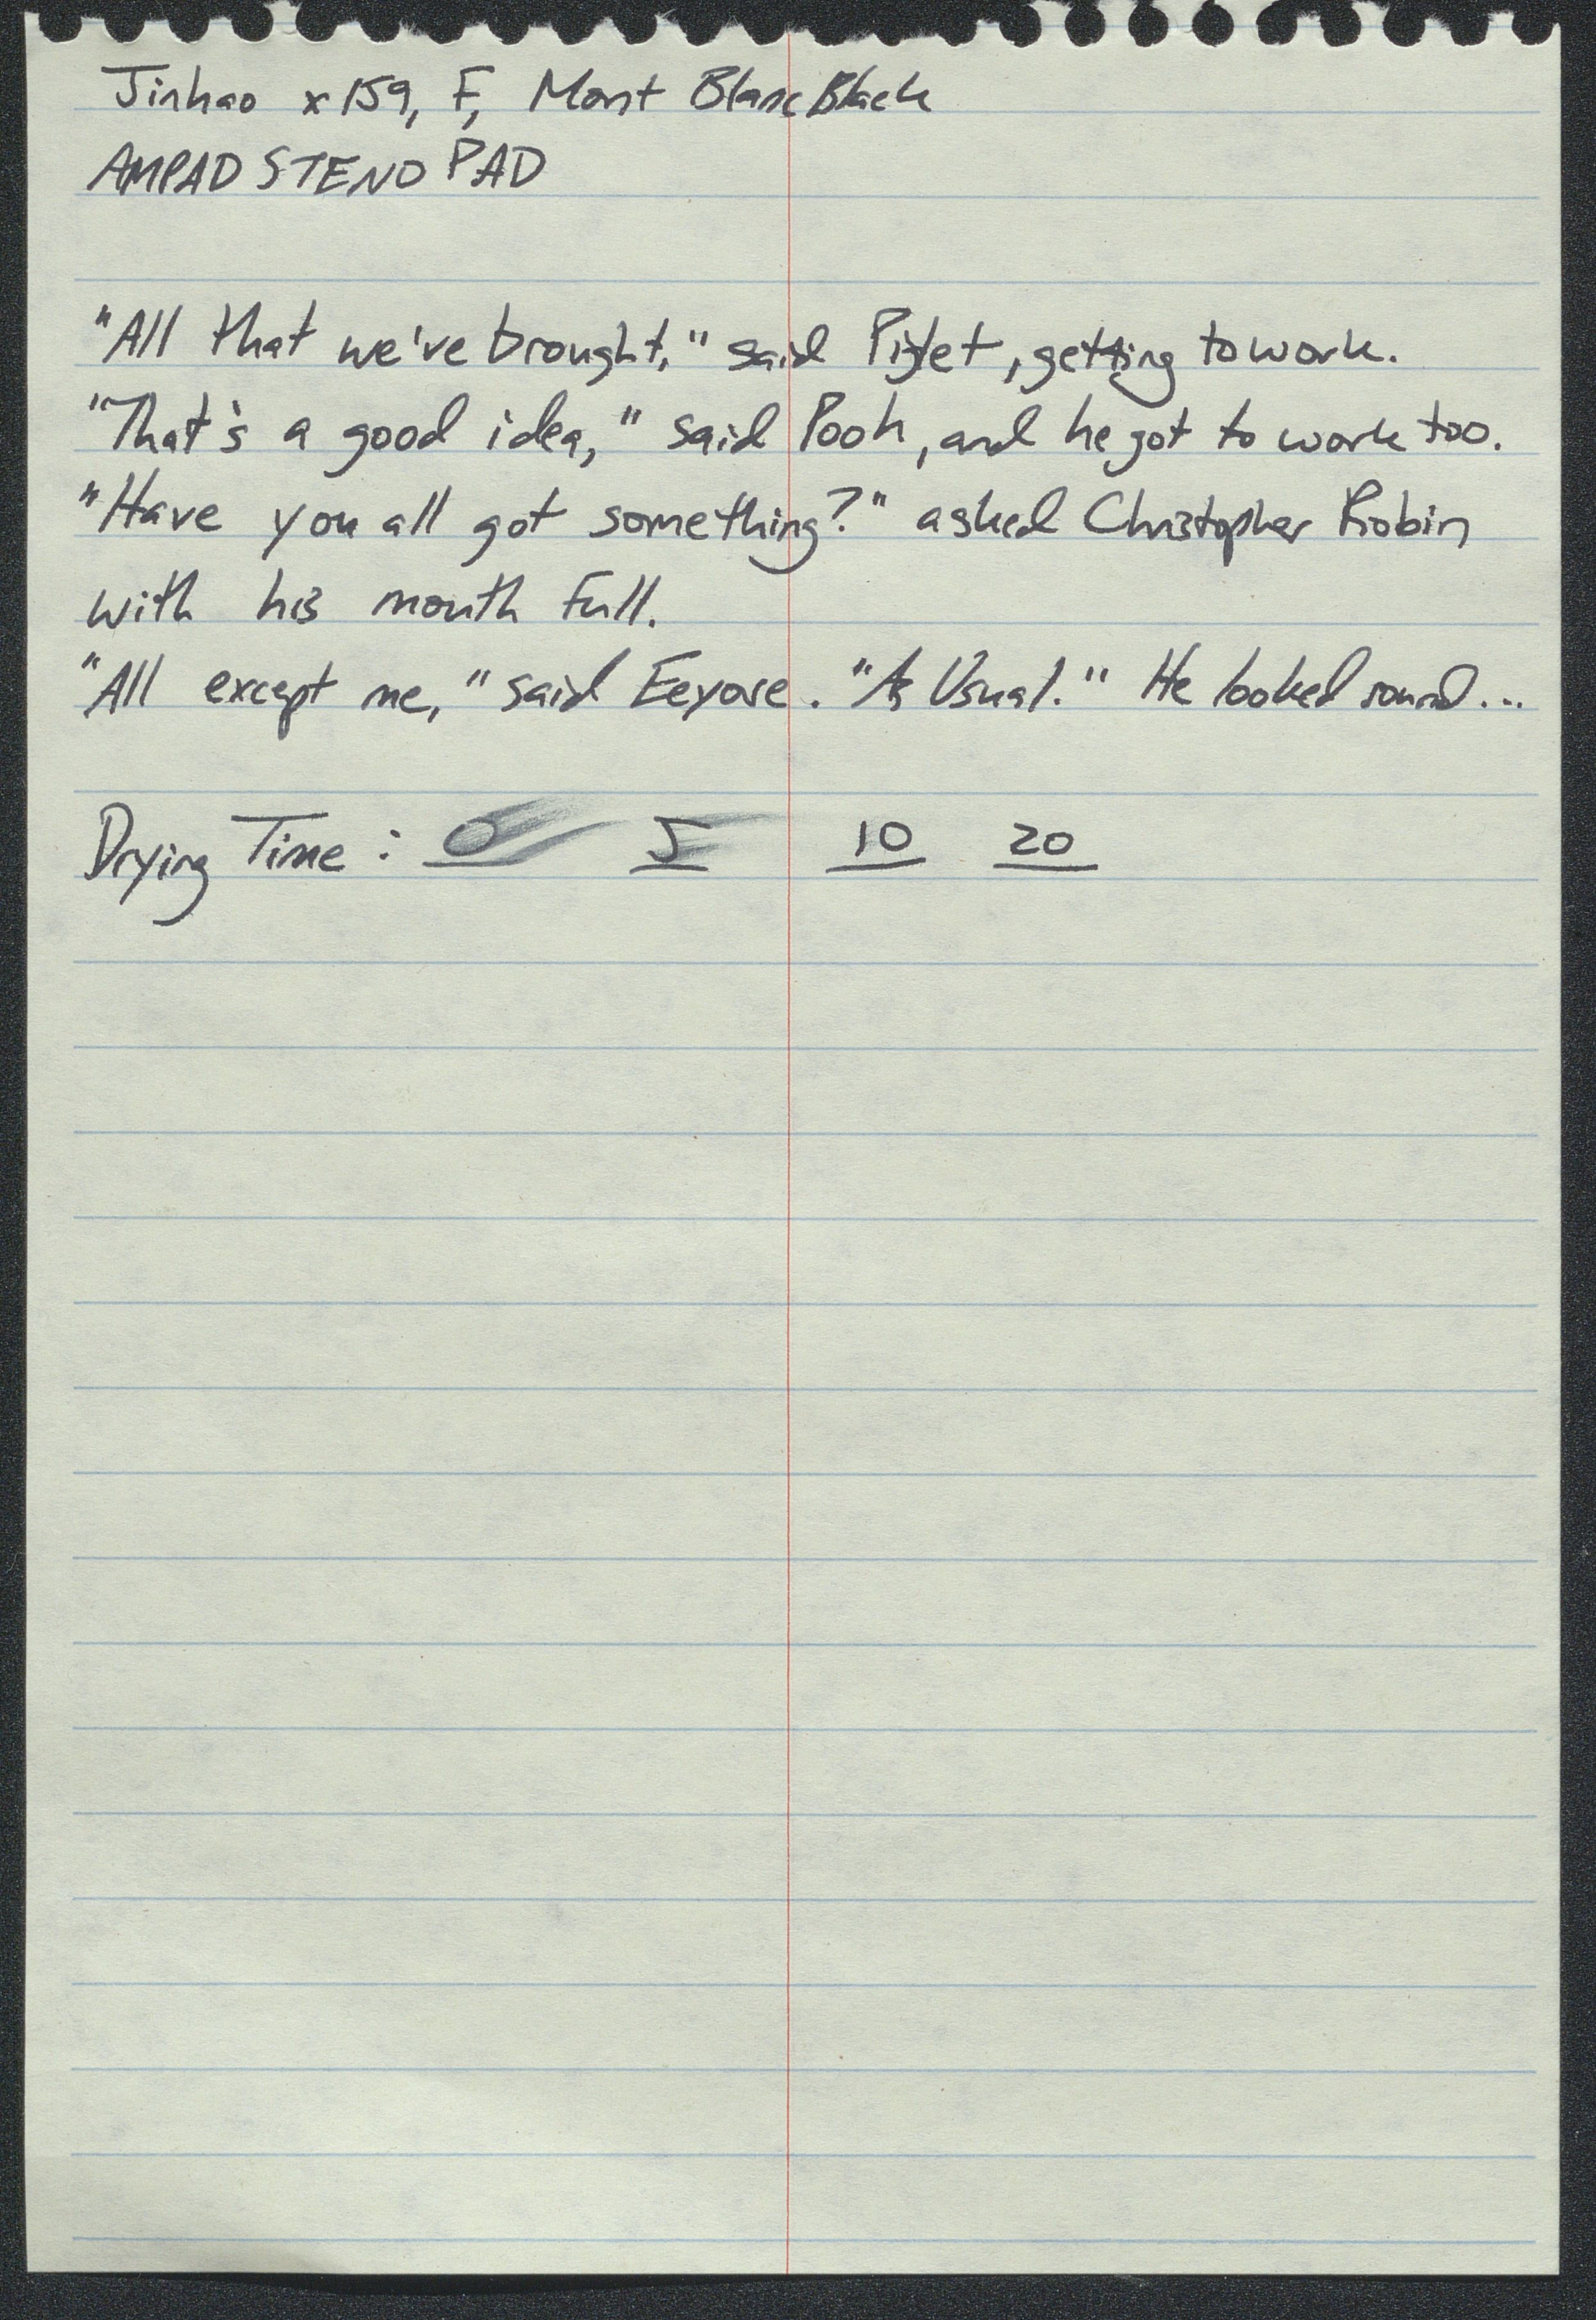 Jinhao x159, F, Mont Blanc Black
AMPAD STENO PAD
"All that we've brought," said Piglet, getting to work.
"That's a good idea," said Pooh, and he got to work too.
"Have you all got something?" asked Christopher Robin
with his mouth full.
"All except me," said Eeyore. "As Usual." He looked round...
Drying Time: 0 5 10 20